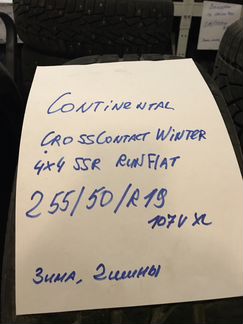 Continental
CrossContact Winter
4x4 SSR RunFlat
255/50/R19
107V XL
Зима, 2 шины